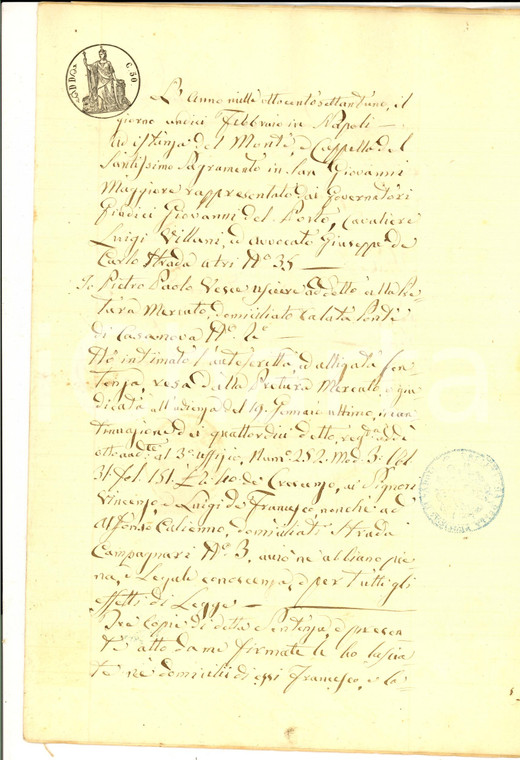 ADDO C. 50
L'Anno mille ottocento settantuno, il
giorno undici Febbraio in Napoli —
Ad istanza del Monte, e Cappella del
Santissimo Sagramento in San Giovanni
Maggiore rappresentato dai Governatori
Giudici Giovanni del Porto, Cavaliere
Luigi Villani, ed avvocato Giuseppe de
Carlo Strada Atri N.° 35 —
Io Pietro Paolo Vesce usciere addetto alla Pre
tura Mercato, domiciliato Calata Ponte
di Casanova N.° 2.°
Ho intimato l'antescritta, ed alligata Sen
tenza, resa dalla Pretura Mercato, e pu
dicata all'udienza del 19. Gennaio ultimo, in con
tinuazione dei quattordici detto,
al 3.° uffizio, Num.° 252. Mod. 3.° Vol
31. Fol. 151. £ 2:40 ai Signori
Vincenzo, e Luigi de Francesco, nonchè ad
Alfonso Calienno, domiciliati Strada
Campagnari N.° 3, ne abbiano pie
na, e Legale conoscenza, e per tutti gli
effetti di Legge —
Tre Copie di detta Sentenza, e presen
te atto da me firmate le ho lascia
te nè domicilii di essi Francesco, e Ca-